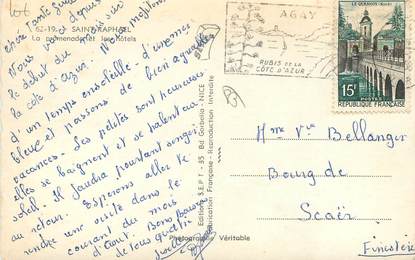 62-19 - SAINT-RAPHAEL
La promenade et les hôtels
Chère Tante
Nous
le début du
la côte d'azur. Nous
d'un temps ensoleillé - d'un
bleue et passons de bien agréables
vacances. Les petites sont heureuses
elles se baignent et se halent au
soleil. Il faudra pourtant songer
au retour. Espérons aller te
rendre une visite dans le
courant du mois
d'Août. Bons Baisers
de tous quatre
Editions S.E.P.T - 35 Bd Gorbella - NICE
Fabrication Française - Reproduction Interdite
Photographie Véritable
AGAY
RUBIS DE LA
CÔTE D'AZUR
LE QUESNOY (Nord)
15F
REPUBLIQUE FRANÇAISE
Mme Vve Bellanger
Bourg de
Scaër
Finistère